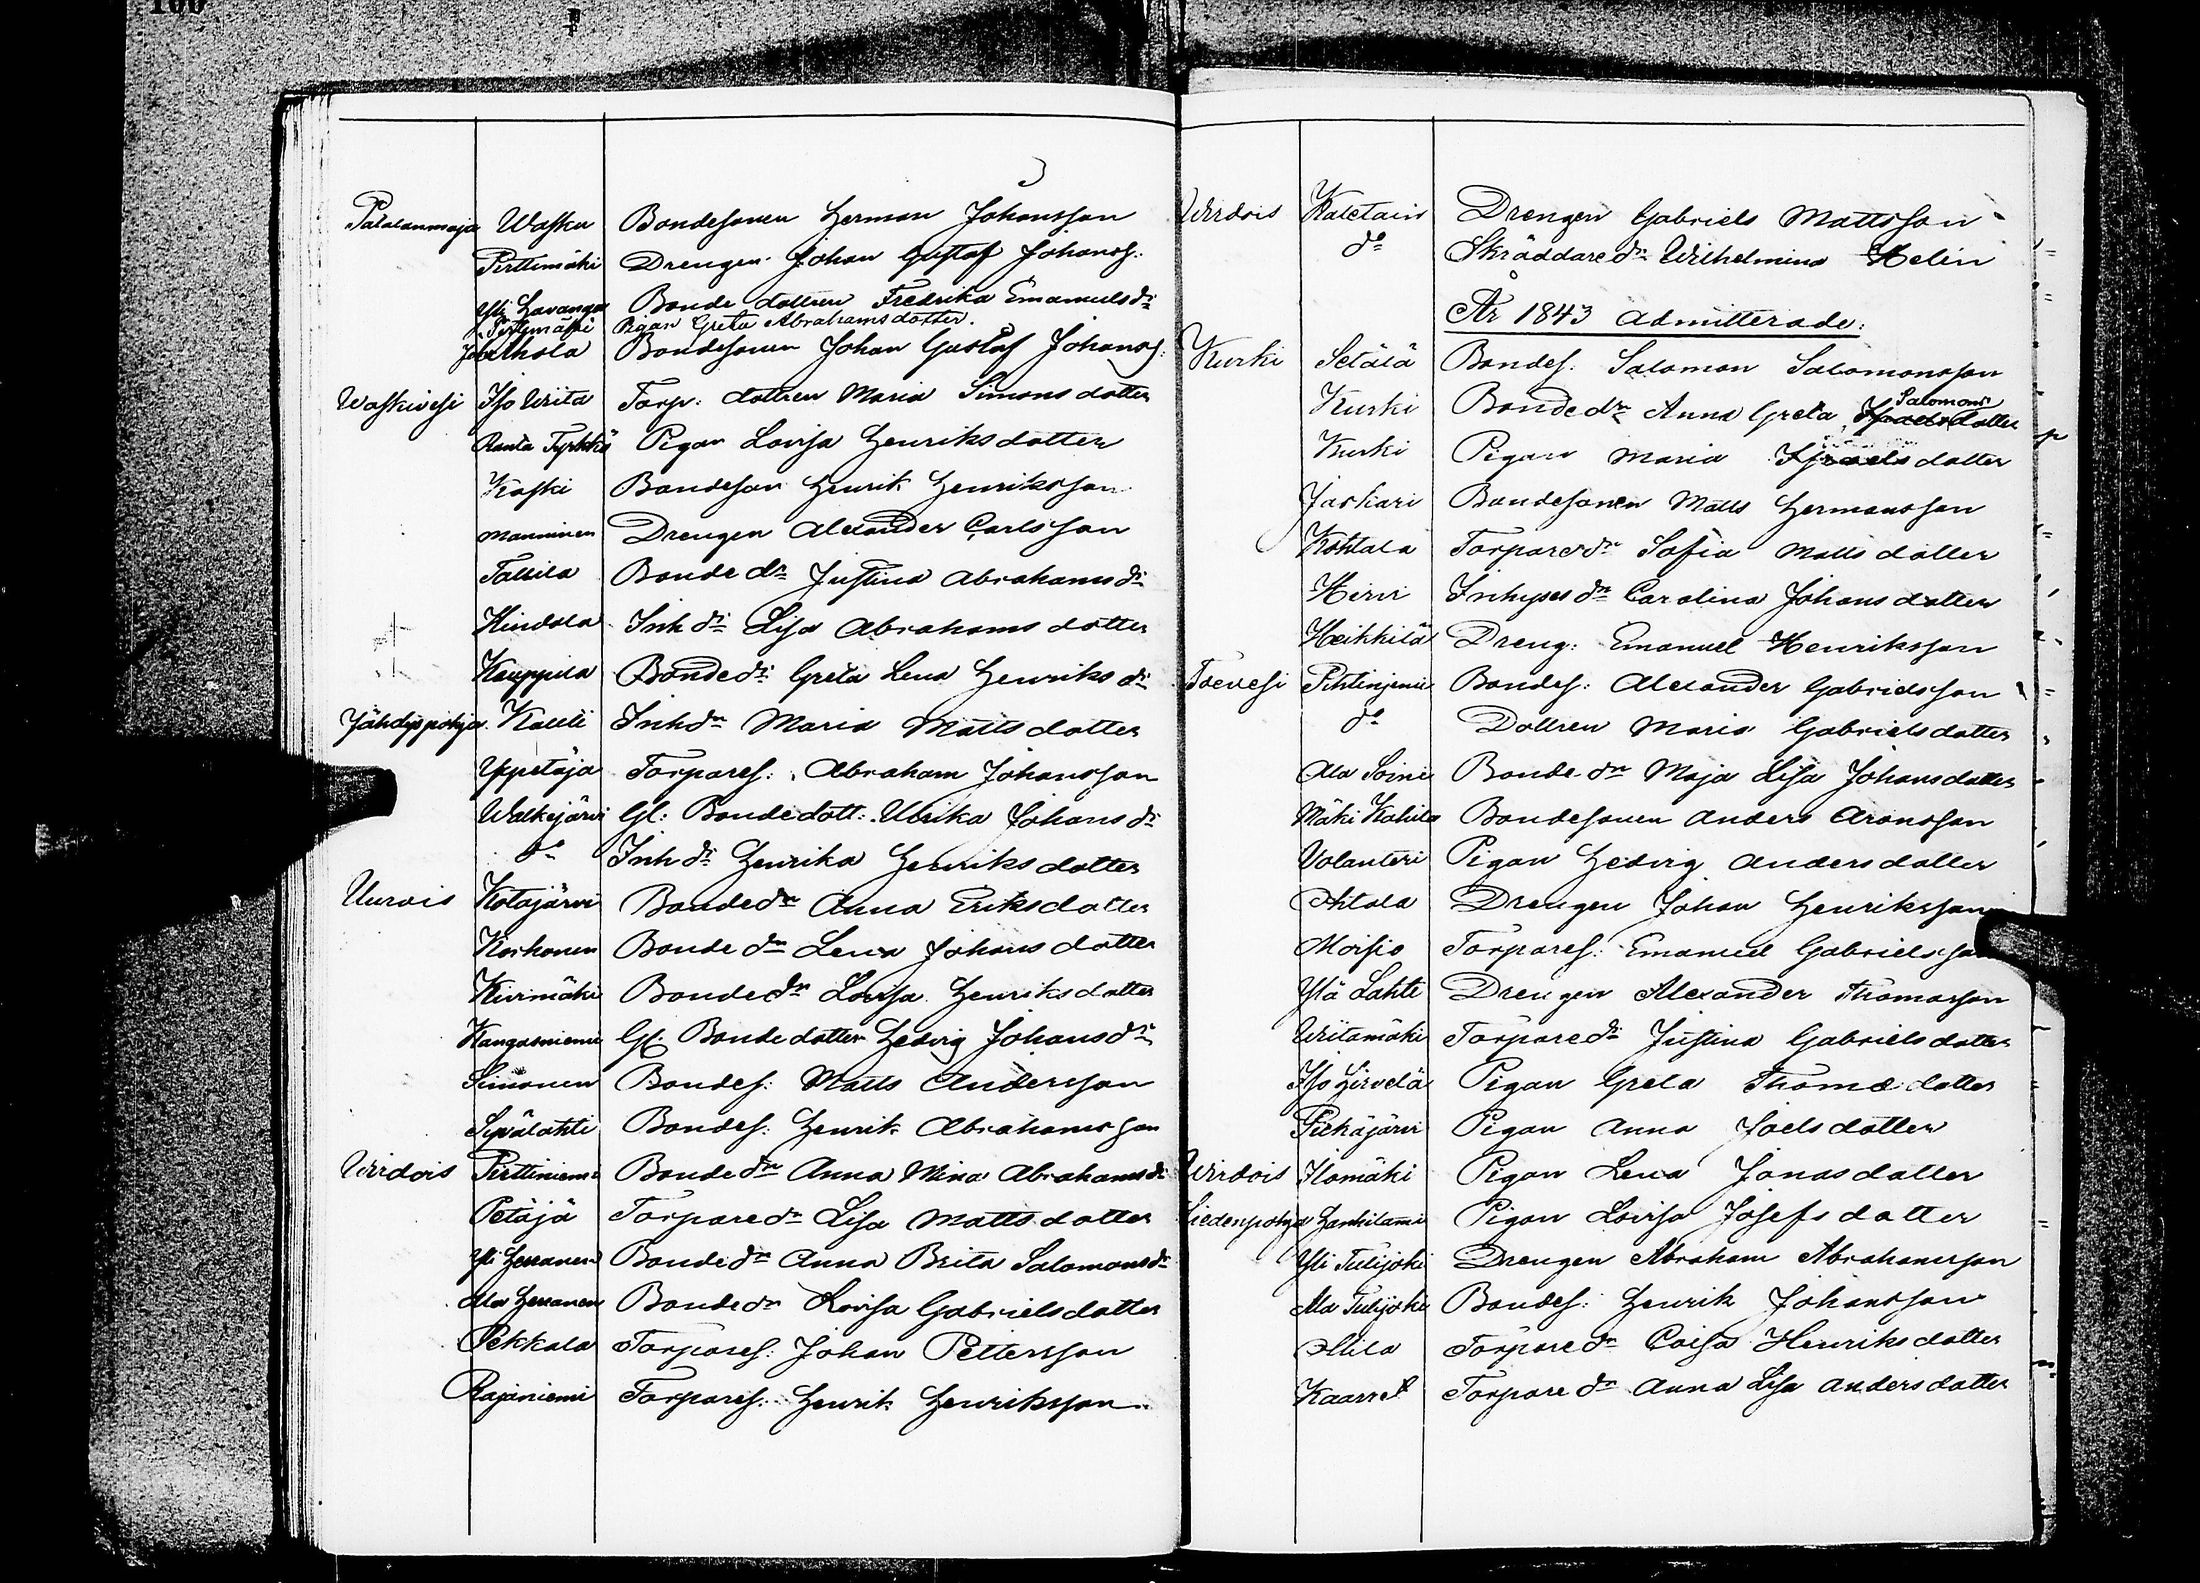 100
Patalanmaja Wasku Bondesonen Herman Johansson
Perttimäki Drengen Johan Gustaf Johanss.
Yli Havanga Bonde dottren Fredrika Emanuels dr
Pertymäki Pigan Greta Abrahamsdotter.
Bondesonen Johan Gustaf Johanss.
Waskivesi Iso Wiita Torp: dottren Maria Simons dotter
Ranta Pigan Lovisa Henriks dotter
Koski Bondeson Henrik Henriksson
Manninen Drengen Alexander Carlsson
Tallila Bonde dr Justina Abrahams dr
Hindola Inh dr Lisa Abrahams dotter
Kauppila Bonde dr Greta Lena Henriks dr
Jähdyspohja Katti Inh dr Maria Matts dotter
Yppetäja Torpares: Abraham Johansson
Walkejärvi Gl: Bondedott: Ulrika Johans dr
do Inh dr Henrika Henriks dotter
Uurais Kotajärvi Bonde dr Anna Eriksdotter
Korhonen Bonde dr Lena Johans dotter
Kivimäki Bonde dr Lovisa Henriks dotter
Kangasniemi Gl. Bonde dotter Hedvig Johans dr
Simonen Bondes: Matts Andersson
Sipälahti Bondes: Henrik Abrahamsson
Wirdois Perttiniemi Bonde dr Anna Mina Abrahams dr
Petäjä Torpare dr Lisa Matts dotter
Yli Herranen Bonde dr Anna Brita Salomons dr
Ala Herranen Bonde dr Lovisa Gabriels dotter
Pekkala Torpares: Johan Pettersson
Rajaniemi Torpares: Henrik Henriksson
Wirdois Kaletain Drengen Gabriels Mattsson
do Skräddare dr Wilhelmina Helin
År 1843 admitterade:
Kurki Setälä Bondes. Salomon Salomonsson
Kurki Bonde dr Anna Greta Salomons Israels dotter
Kurki Pigan Maria Israels dotter
Jaskari Bondesonen Matts Hermansson
Kohtala Torpare dr Sofia Matts dotter
Hirvi Inhyses dr Carolina Johans dotter
Heikkilä Dreng: Emanuel Henriksson
Toevesi Pihtinjemi Bondes: Alexander Gabrielsson
do Dottren Maria Gabriels dotter
Ala Soini Bonde dr Maja Lisa Johans dotter
Mäki Kahila Bondesonen Anders Aronsson
Volanteri Pigan Hedvig Anders dotter
Ahtola Drengen Johan Henriksson
Moisio Torpares: Emanuel Gabrielsson
Ylä Lahti Drengen Alexander Thomasson
Wiitamäki Torpare dr Justina Gabriels dotter
Iso Hirvelä Pigan Greta Thomæ dotter
Piekäjärvi Pigan Anna Joels dotter
Wirdois Ilomäki Pigan Lena Jonas dotter
Liedenpohja Hankilami Pigan Lovisa Josefs dotter
Yli Tulijoki Drengen Abraham Abrahamsson
Ala Tulijoki Bondes: Henrik Johansson
Alila Torpare dr Caisa Henriks dotter
Kaarret Torpare dr Anna Lisa Anders dotter